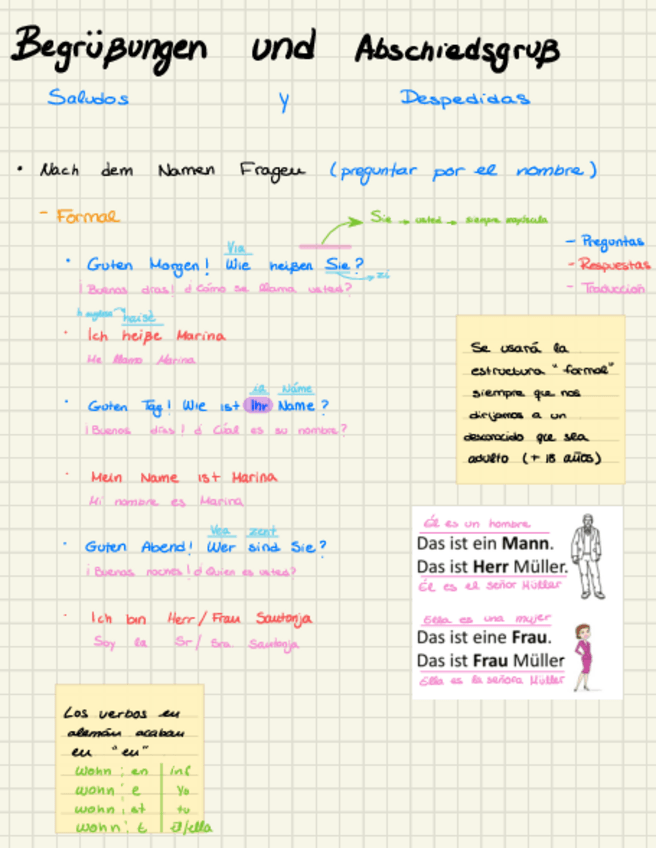 Begrüßungen und Abschiedsgruß
Saludos y Despedidas
• Nach dem Namen Fragen (preguntar por el nombre)
- Formal
Sie → usted → siempre mayúscula
- Preguntas
- Respuestas
- Traducción
Via
• Guten Morgen! Wie heißen Sie?
zi
¡Buenos días! ¿Cómo se llama usted?
haisë
· Ich heiße Marina
Me llamo Marina
ia Näme
• Guten Tag! Wie ist Ihr Name?
¡Buenos días! ¿Cúal es su nombre?
· Mein Name ist Marina
Mi nombre es Marina
Vea zent
· Guten Abend! Wer sind Sie?
¡Buenas noches! ¿Quien es usted?
· Ich bin Herr/Frau Sautonja
Soy la Sr/Sra. Sautonja
Se usará la
estructura "formal"
siempre que nos
dirijamos a un
desconocido que sea
adulto (+ 18 años)
Él es un hombre
Das ist ein Mann.
Das ist Herr Müller.
Él es el señor Müller
Ella es una mujer
Das ist eine Frau.
Das ist Frau Müller
Ella es la señora Müller
Los verbos en
alemán acaban
en "en"
wohn:en | inf
wohn:e | Yo
wohn:st | tu
wohn:t | él/ella